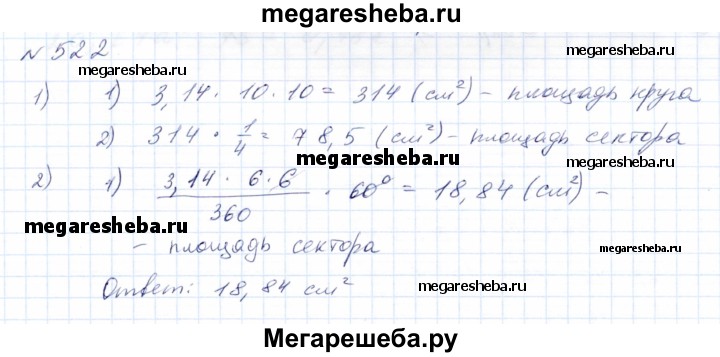 megaresheba.ru
№ 522
megaresheba.ru
megaresheba.ru
1) 1) 3,14 · 10 · 10 = 314 (см²) – площадь круга
2) 314 · 1/4 = 78,5 (см²) – площадь сектора
megaresheba.ru
megaresheba.ru
2) 1) 3,14 · 6 · 6 / 360 · 60° = 18,84 (см²) –
megaresheba.ru
– площадь сектора
megaresheba.ru
Ответ: 18,84 см²
megaresheba.ru
Мегарешеба.ру